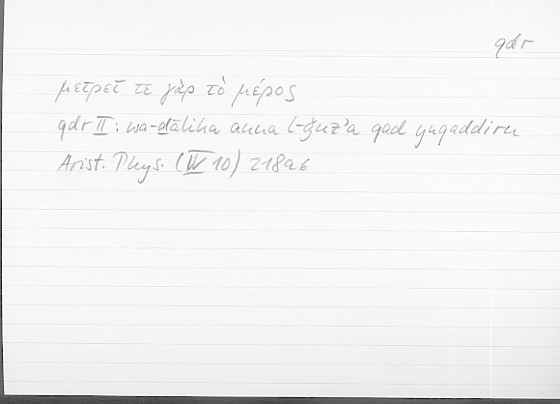 qdr
μετρεῖ τε γὰρ τὸ μέρος
qdr II: wa-ḏālika anna l-ǧuzʾa qad yuqaddiru
Arist. Phys. (IV 10) 218a6